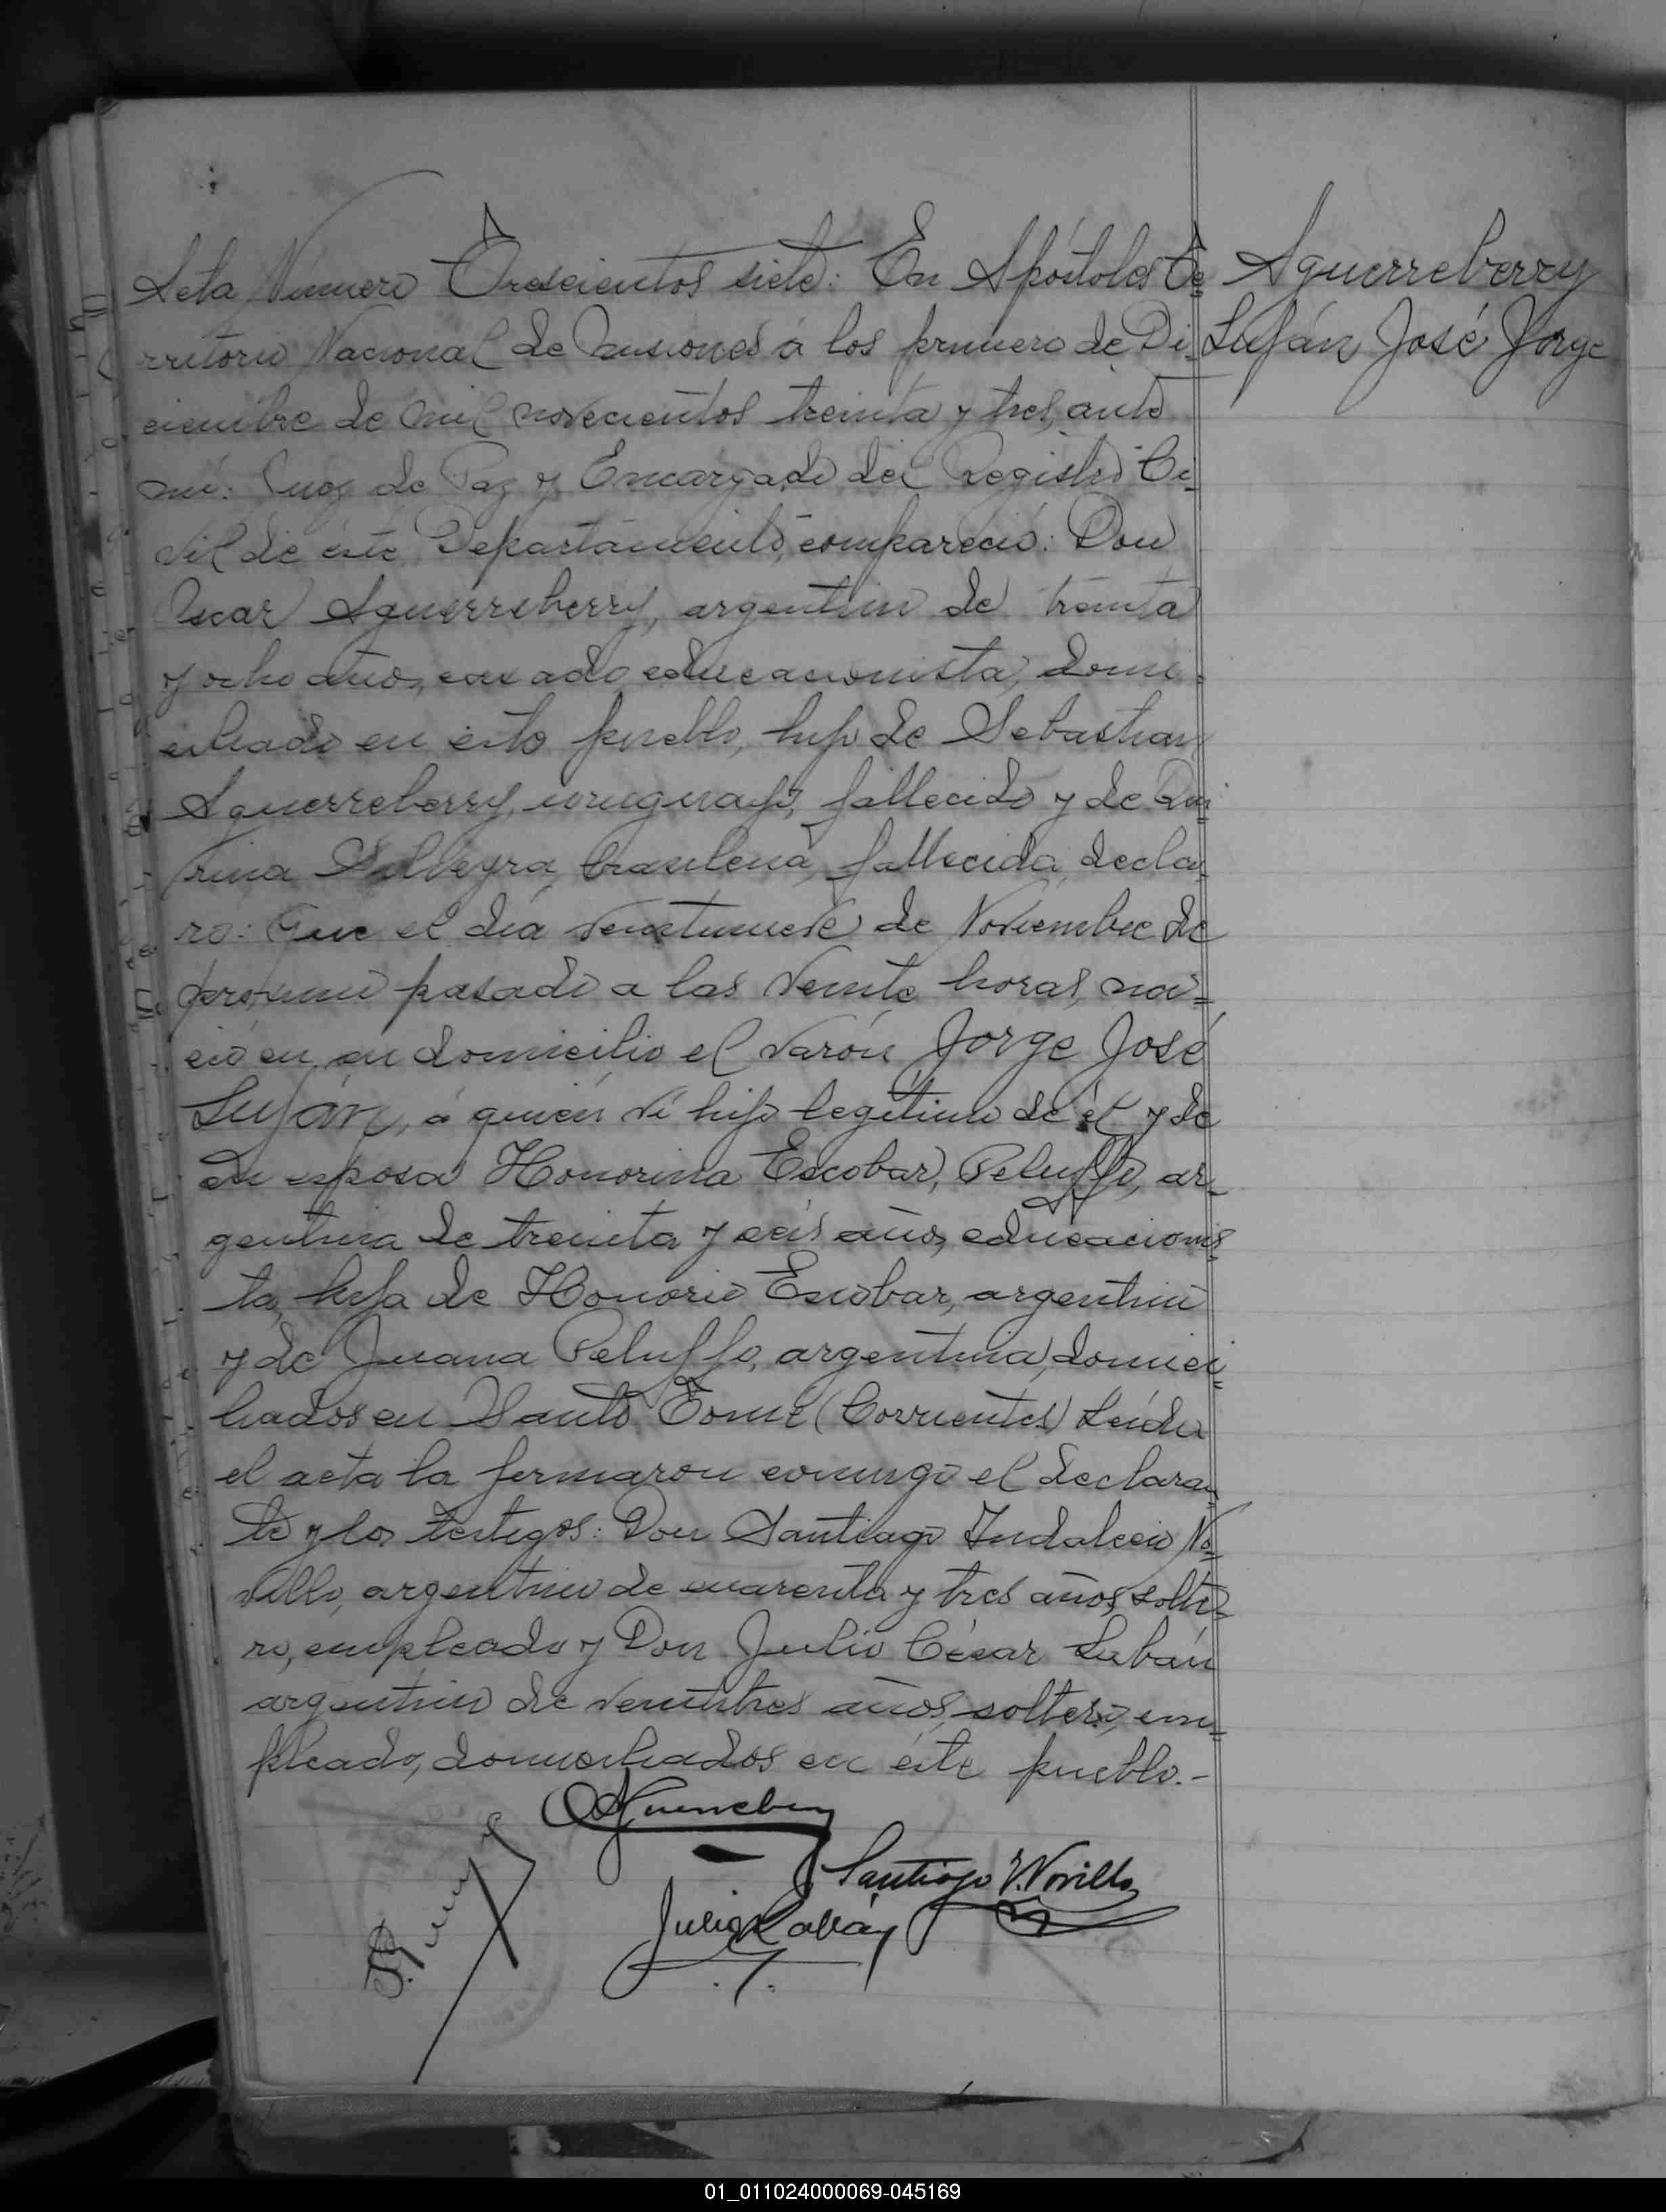 Acta Número Trescientos siete: En Apóstoles Te=
rritorio Nacional de Misiones á los primero de Di=
ciembre de mil novecientos treinta y tres, ante
mí: Juez de Paz y Encargado del Registro Ci=
vil de éste Departamento, compareció: Don
Oscar Aguerreberry, argentino de treinta
y ocho años, casado, educacionista, domi=
ciliado en ésto pueblo, hijo de Sebastian
Aguerreberry, uruguayo, fallecido y de
rina brasilena, fallecida, decla=
ro: Que el día veintinueve de Noviembre de
próximo pasado a las veinte horas, na=
ció en su domicilio el varón Jorge José
Luján, á quien ví hijo legítimo de él y de
su esposa Honorina Escobar, Peluffo, ar=
gentina de treinta y seis años, educacionis=
ta, hija de Honorio Escobar, argentino
y de Juana Peluffo, argentina, domici=
liados en Santo Tomé (Corrientes) Leída
el acta la firmaron conmigo el declaran=
te y los testigos: Don Santiago Indalecio No=
villo, argentino de cuarenta y tres años, solte=
ro, empleado y Don Julio César Labán
argentino de veintitres años, soltero, em=
pleado, domiciliados en éste pueblo.-
Aguerreberry
Luján José Jorge
OAguerreberry
Santiago I. Novillo
Julio C Labán
01_011024000069-045169